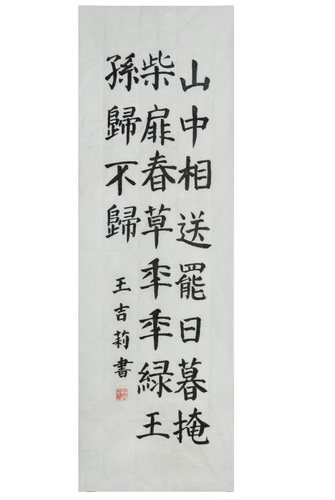 山中相送罷日暮掩
柴扉春草年年綠王
孫歸不歸
王吉莉書